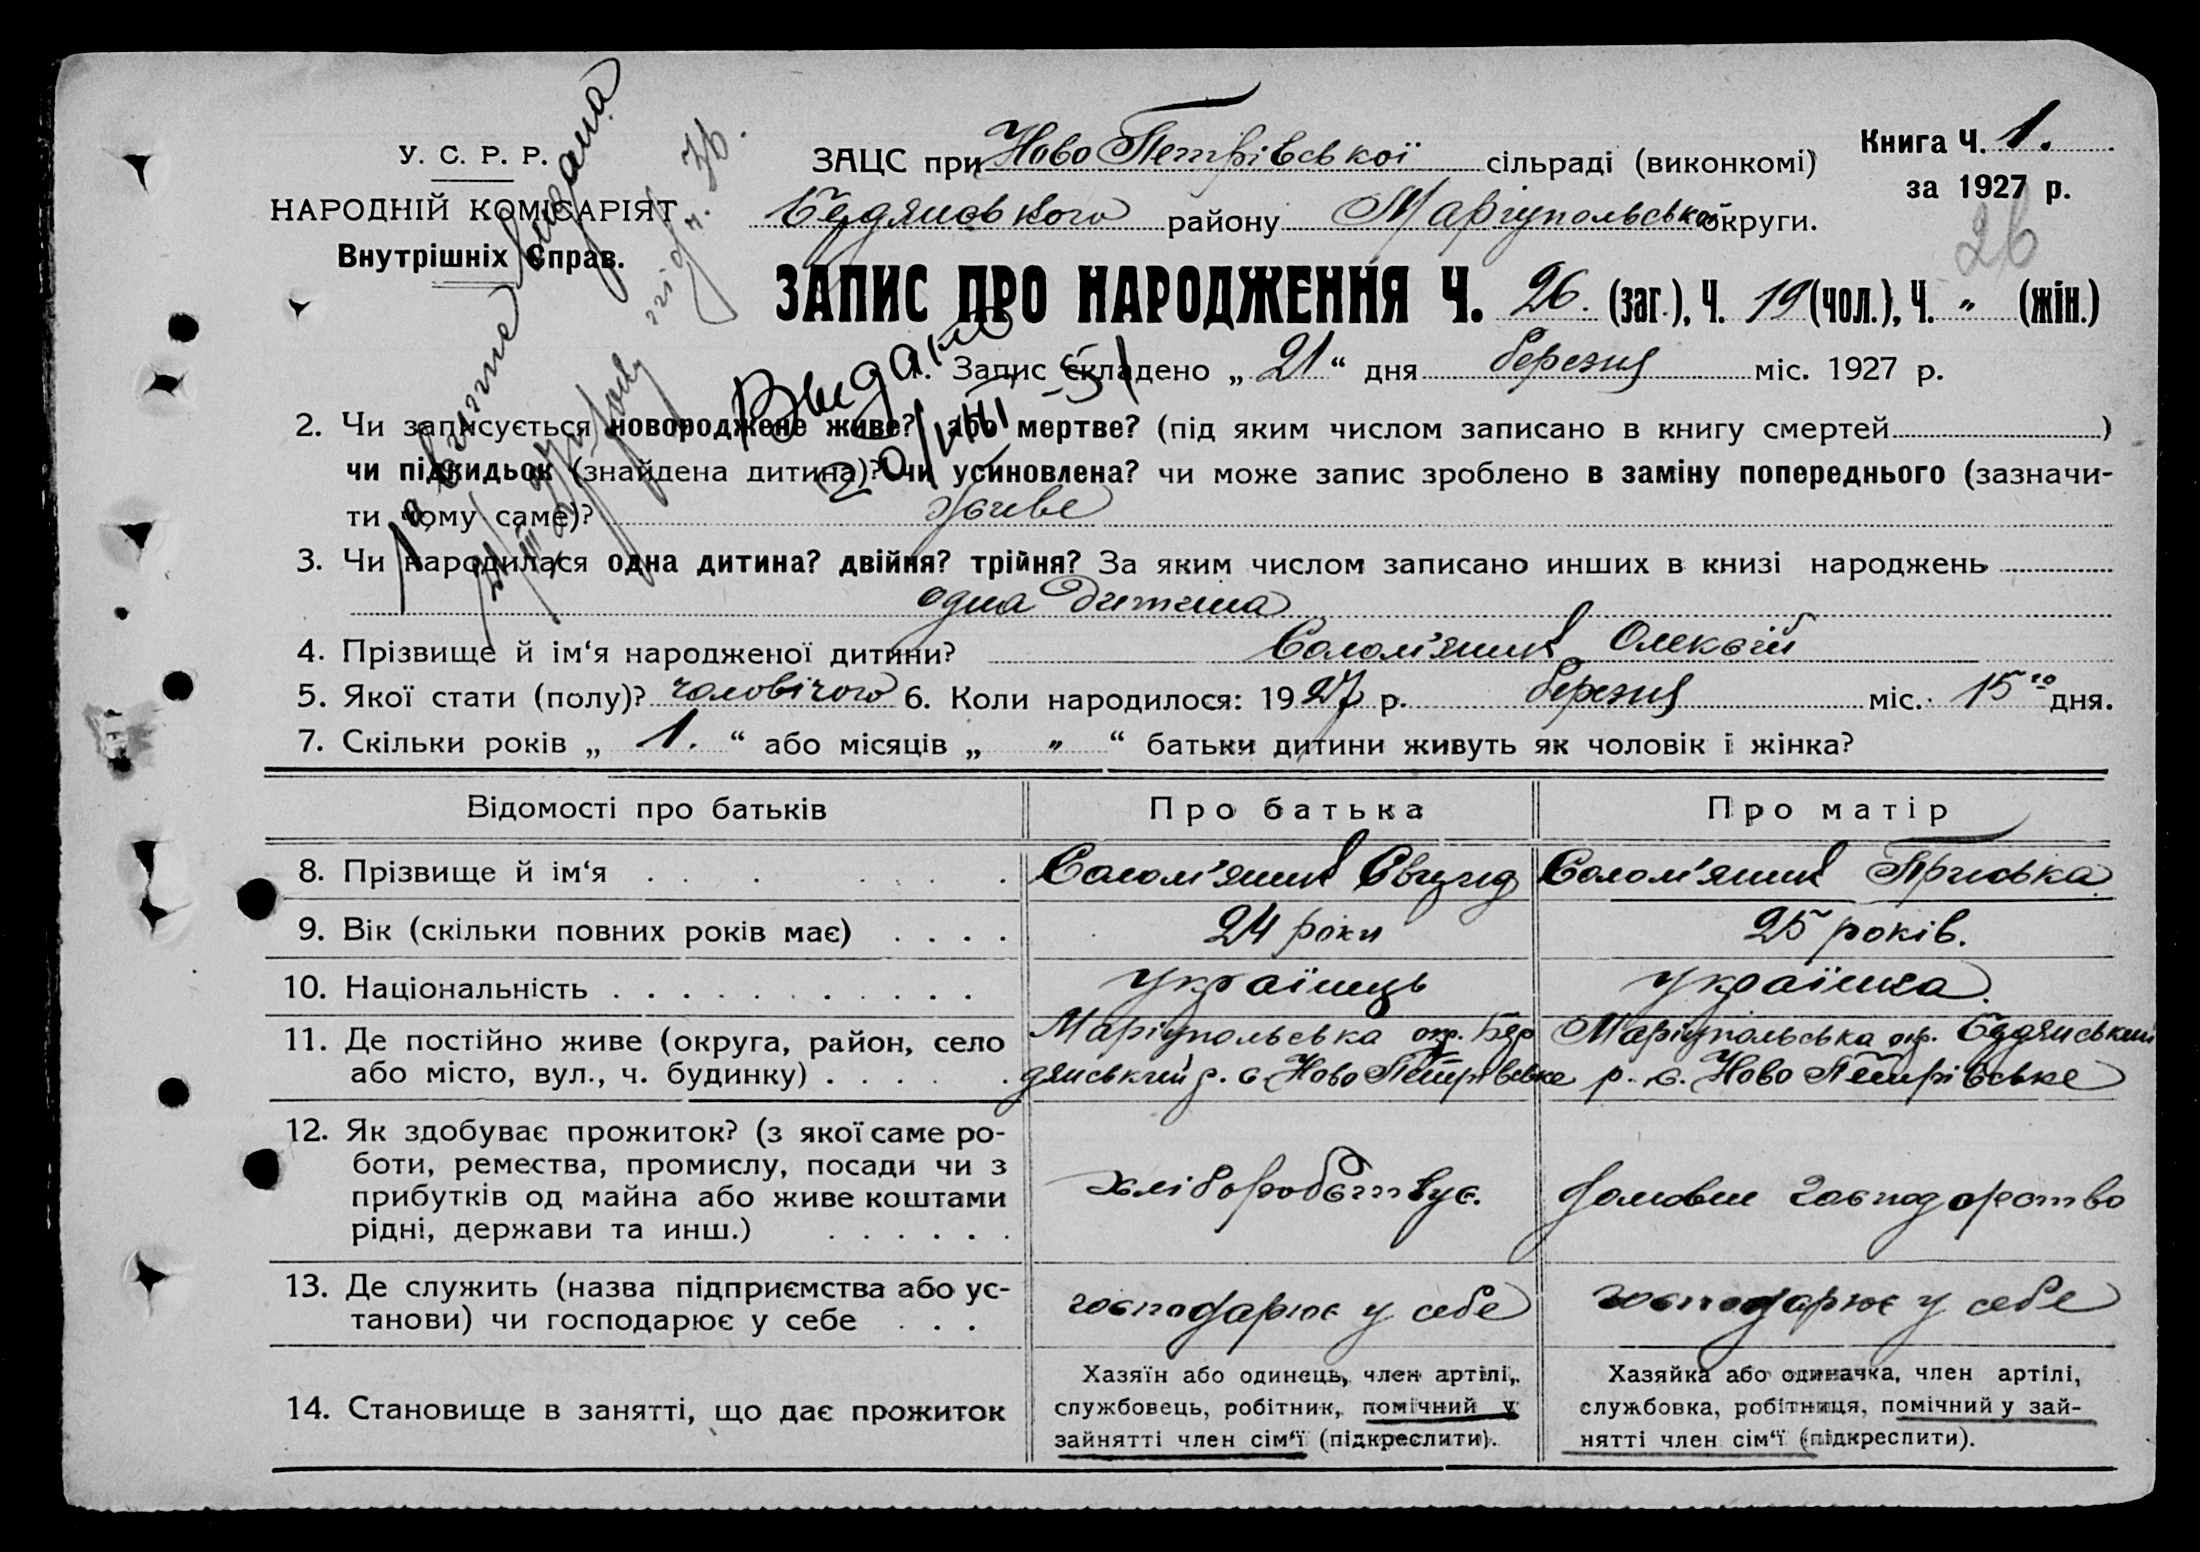 У. С. Р. Р.
НАРОДНІЙ КОМІСАРІЯТ
Внутрішніх Справ.
ЗАЦС при Ново Петрівської сільраді (виконкомі)
Бердянського району Маріупольської округи.
Книга Ч. 1.
за 1927 р.
26
ЗАПИС ПРО НАРОДЖЕННЯ Ч. 26. (заг.), Ч. 19 (чол.), Ч. „ (жін.)
1. Запис складено „ 21 “ дня березня міс. 1927 р.
Выдано
20/VIII-51
видана
2. Чи записується новороджене живе? або мертве? (під яким числом записано в книгу смертей )
чи підкидьок (знайдена дитина)? чи усиновлена? чи може запис зроблено в заміну попереднього (зазначи-
ти чому саме)? живе
3. Чи народилася одна дитина? двійня? трійня? За яким числом записано инших в книзі народжень
одна дитина
4. Прізвище й ім‘я народженої дитини? Солом'яний Олексій
5. Якої стати (полу)? чоловічого 6. Коли народилося: 1927 р. березня міс. 15го дня.
7. Скільки років „ 1. “ або місяців „ „ “ батьки дитини живуть як чоловік і жінка?
Відомості про батьків Про батька Про матір
8. Прізвище й ім‘я Солом'яний Свирид Солом'яний Приська
9. Вік (скільки повних років має) 24 роки 25 років.
10. Національність українець українка.
11. Де постійно живе (округа, район, село Маріупольська окр. Бер Маріупольська окр. Бердянський
або місто, вул., ч. будинку) дянський р. с. Ново Петрівське р. с. Ново Петрівське
12. Як здобуває прожиток? (з якої саме ро-
боти, ремества, промислу, посади чи з
прибутків од майна або живе коштами
рідні, держави та инш.) хліборобствує. домовне господарство
13. Де служить (назва підприємства або ус-
танови) чи господарює у себе господарює у себе господарює у себе
14. Становище в занятті, що дає прожиток
Хазяїн або одинець, член артілі,
службовець, робітник, помічний у
зайнятті член сім‘ї (підкреслити).
Хазяйка або одиначка, член артілі,
службовка, робітниця, помічний у зай-
нятті член сім‘ї (підкреслити).